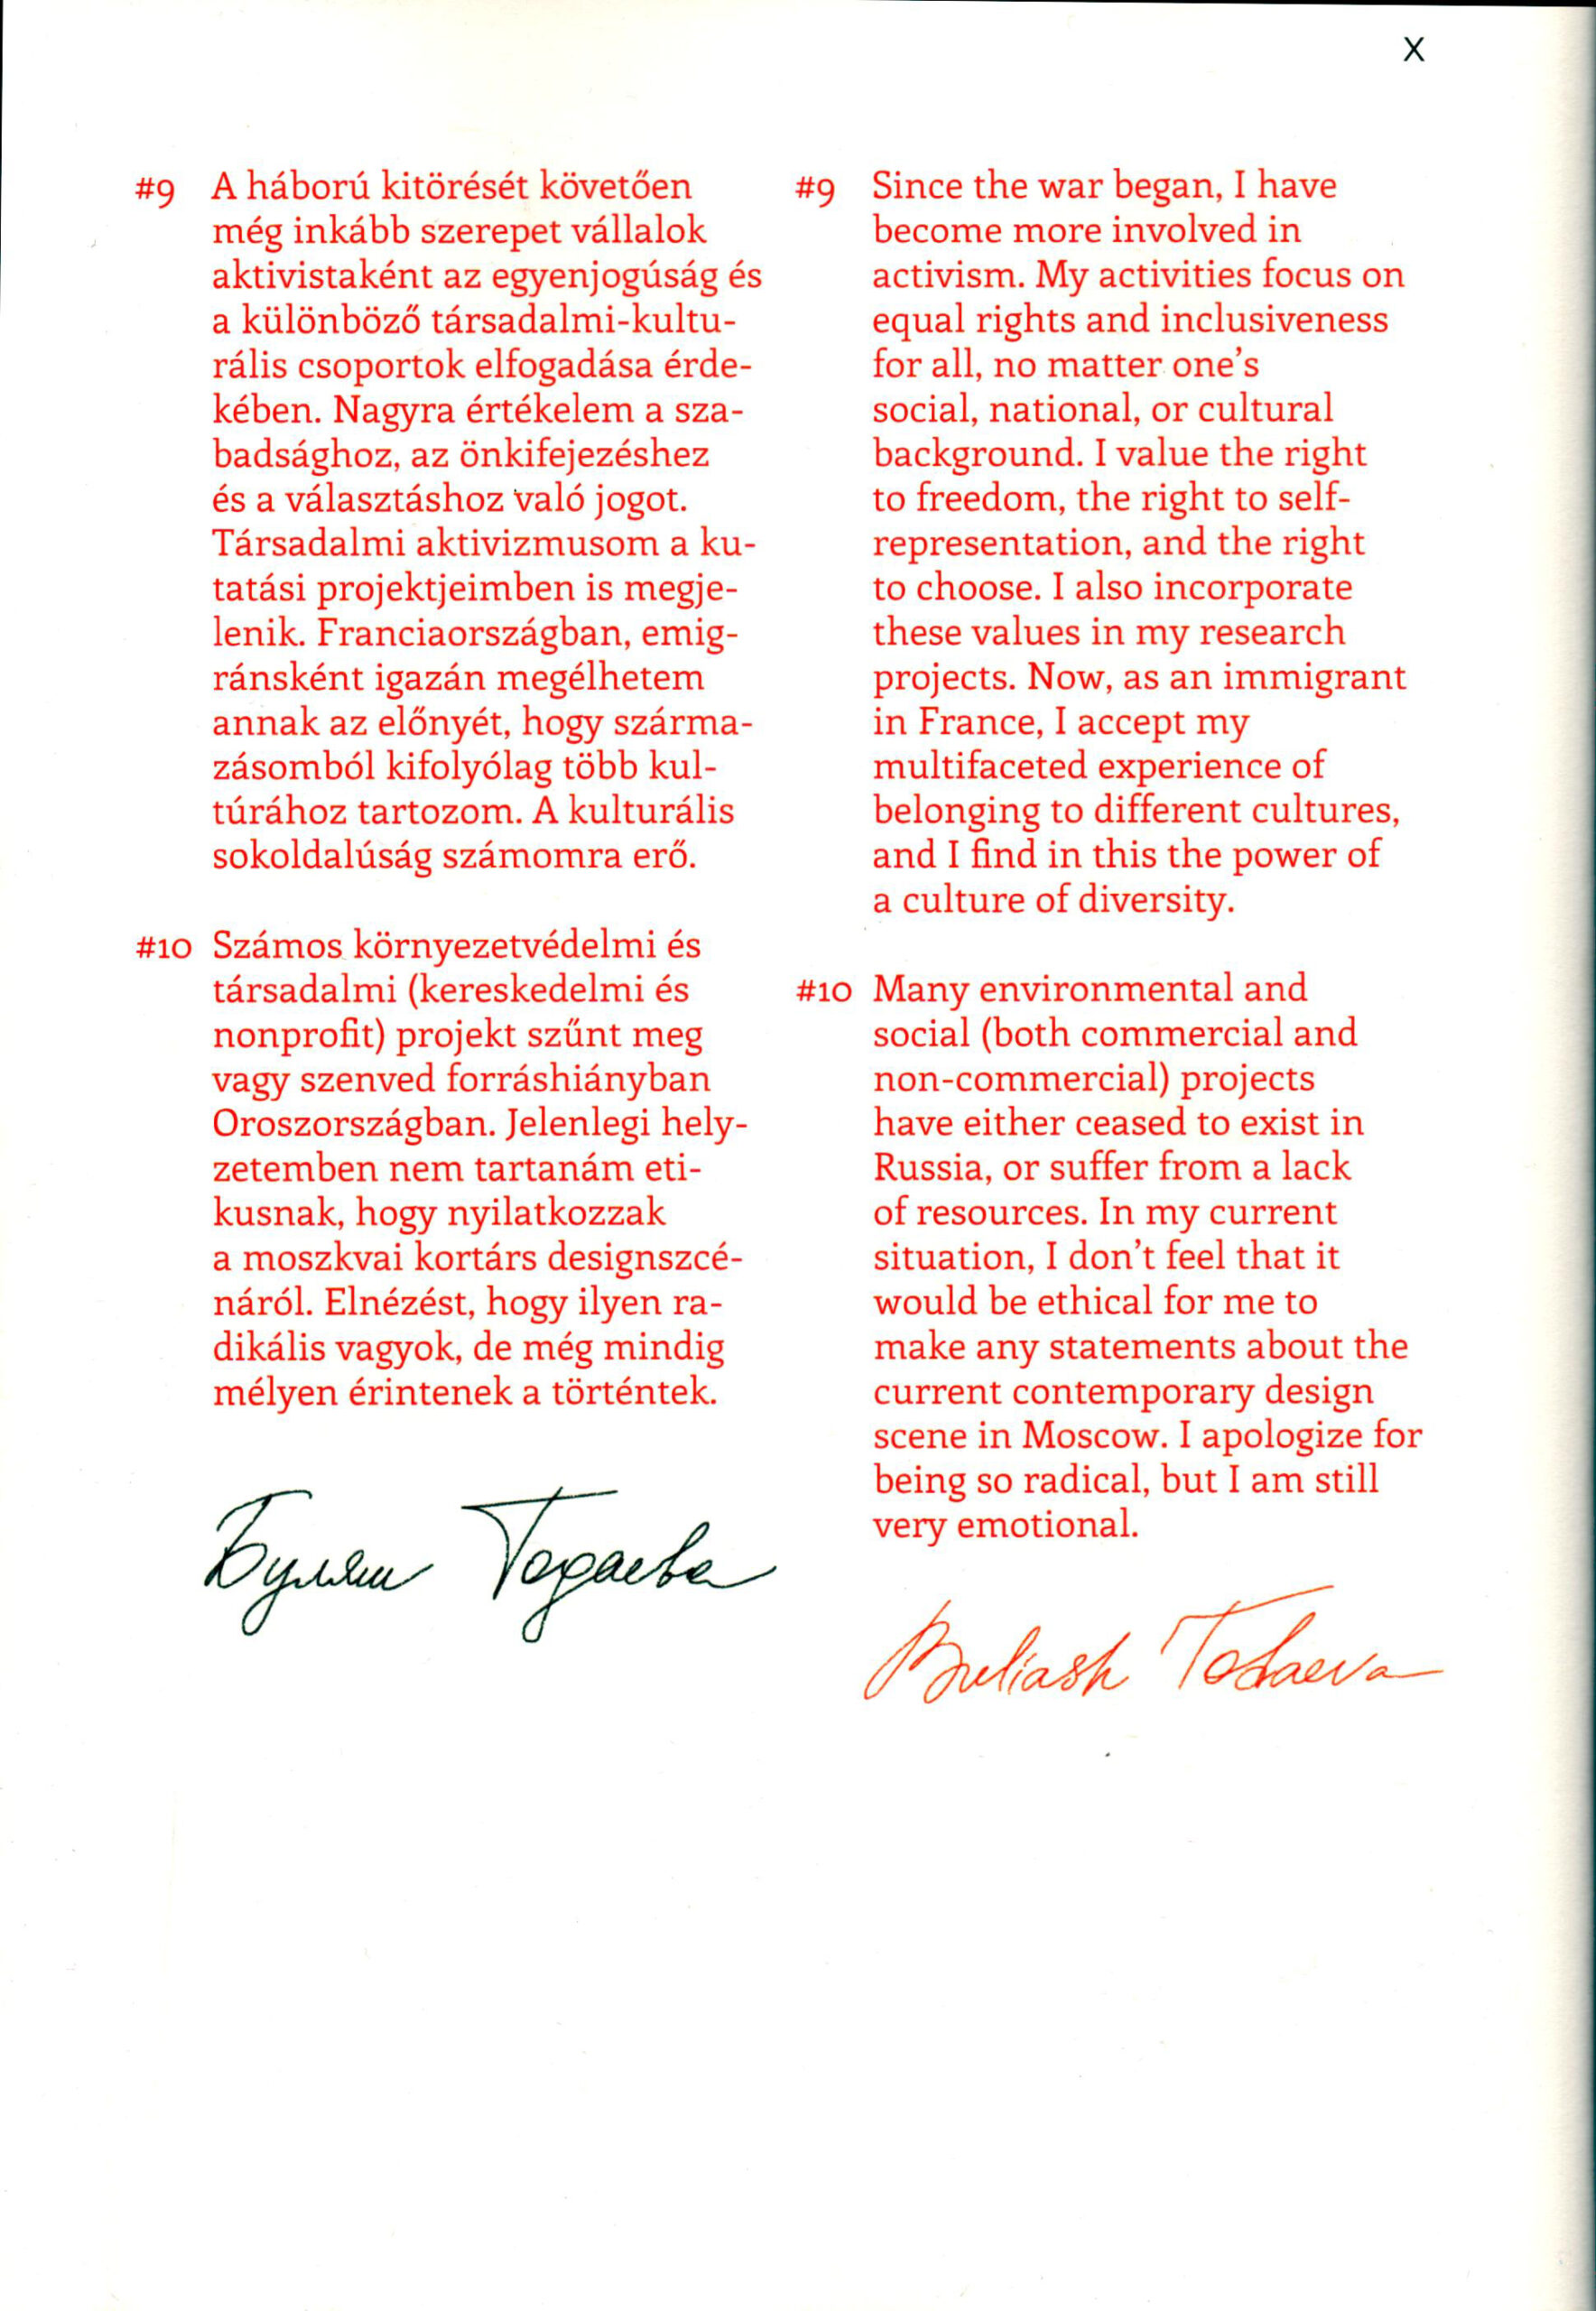 X
#9 A háború kitörését követően
még inkább szerepet vállalok
aktivistaként az egyenjogúság és
a különböző társadalmi-kultu-
rális csoportok elfogadása érde-
kében. Nagyra értékelem a sza-
badsághoz, az önkifejezéshez
és a választáshoz való jogot.
Társadalmi aktivizmusom a ku-
tatási projektjeimben is megje-
lenik. Franciaországban, emig-
ránsként igazán megélhetem
annak az előnyét, hogy szárma-
zásomból kifolyólag több kul-
túrához tartozom. A kulturális
sokoldalúság számomra erő.
#10 Számos környezetvédelmi és
társadalmi (kereskedelmi és
nonprofit) projekt szűnt meg
vagy szenved forráshiányban
Oroszországban. Jelenlegi hely-
zetemben nem tartanám eti-
kusnak, hogy nyilatkozzak
a moszkvai kortárs designszcé-
náról. Elnézést, hogy ilyen ra-
dikális vagyok, de még mindig
mélyen érintenek a történtek.
Буляш Тодаева
#9 Since the war began, I have
become more involved in
activism. My activities focus on
equal rights and inclusiveness
for all, no matter one's
social, national, or cultural
background. I value the right
to freedom, the right to self-
representation, and the right
to choose. I also incorporate
these values in my research
projects. Now, as an immigrant
in France, I accept my
multifaceted experience of
belonging to different cultures,
and I find in this the power of
a culture of diversity.
#10 Many environmental and
social (both commercial and
non-commercial) projects
have either ceased to exist in
Russia, or suffer from a lack
of resources. In my current
situation, I don't feel that it
would be ethical for me to
make any statements about the
current contemporary design
scene in Moscow. I apologize for
being so radical, but I am still
very emotional.
Buliash Todaeva